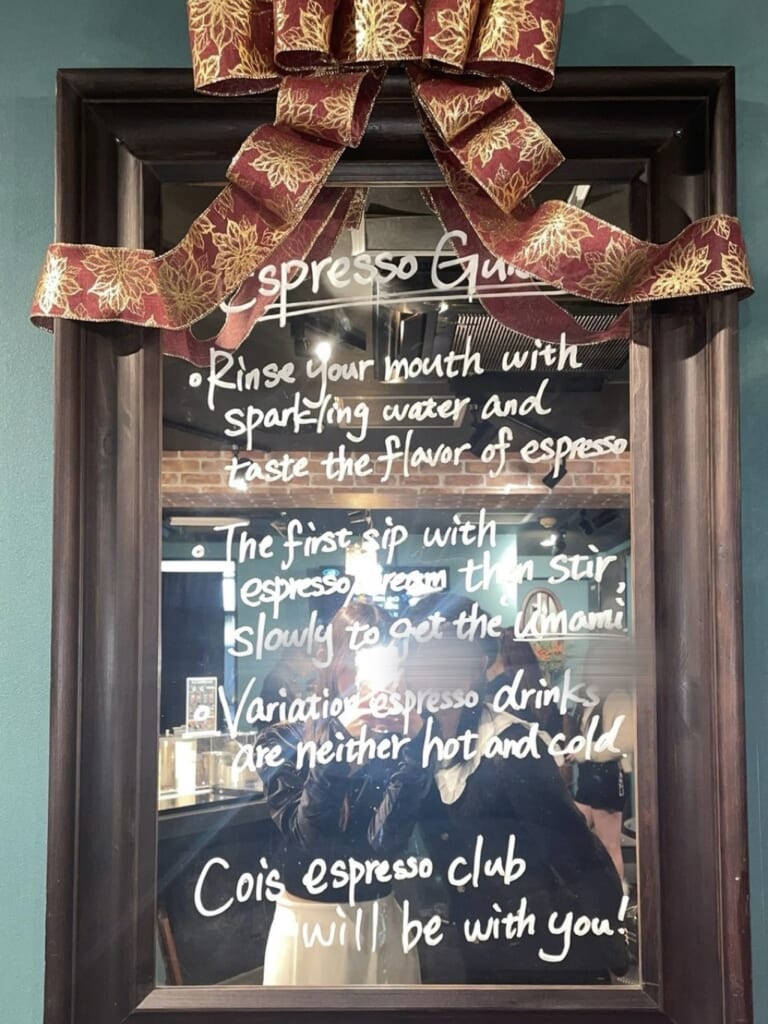 Espresso Gui
• Rinse your mouth with
sparkling water and
taste the flavor of espresso
• The first sip with
espresso cream then stir,
slowly to get the umami
• Variation espresso drinks
are neither hot and cold
Cois espresso club
will be with you!